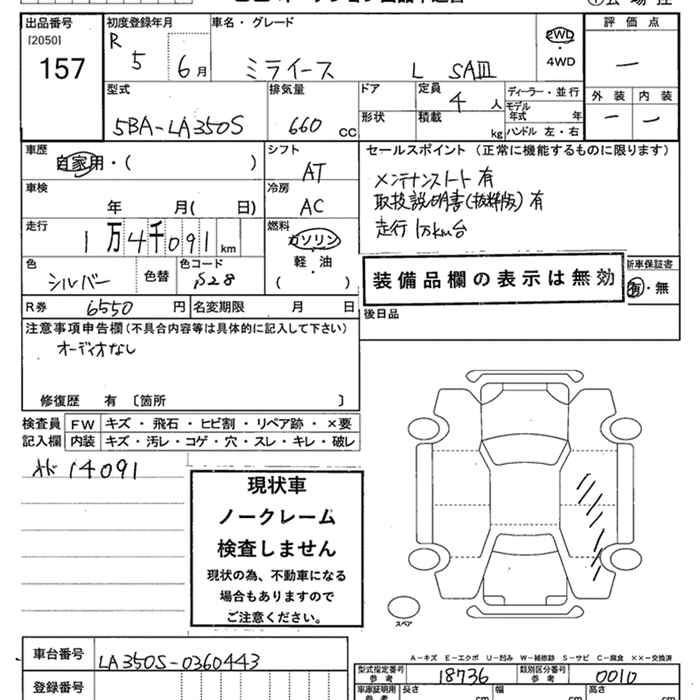 出品番号
[2050]
157
初度登録年月
R 5
6月
車名・グレード
ミライース L SAⅢ
2WD
・
4WD
評価点
―
外装 内装
― ―
型式
5BA-LA350S
排気量
660 CC
ドア
形状
定員
4人
積載
kg
ディーラー・並行
モデル
年式 年
ハンドル 左・右
車歴
自家用・( )
シフト
AT
車検
年 月( 日)
冷房
AC
走行
1万4千091km
燃料
ガソリン
・
軽・油
( )
色
シルバー
色替
色コード
S28
R券 6550円
名変期限 月 日
セールスポイント (正常に機能するものに限ります)
メンテナンスノート有
取扱説明書(抜粋版)有
走行1万km台
装備品欄の表示は無効
新車保証書
有・無
後日品
注意事項申告欄(不具合内容等は具体的に記入して下さい)
オーディオなし
修復歴 有〔箇所 〕
検査員
記入欄
FW キズ・飛石・ヒビ割・リペア跡・×要
内装 キズ・汚レ・コゲ・穴・スレ・キレ・破レ
14091
現状車
ノークレーム
検査しません
現状の為、不動車になる
場合もありますので
ご注意ください。
スペア
A-キズ E-エクボ U-凹み W-補修跡 S-サビ C-腐食 ××-交換済
車台番号
LA350S-0360443
登録番号
型式指定番号
参考
18736
類別区分番号
参考
0010
車庫証明用
参考
長さ cm
幅 cm
高さ cm